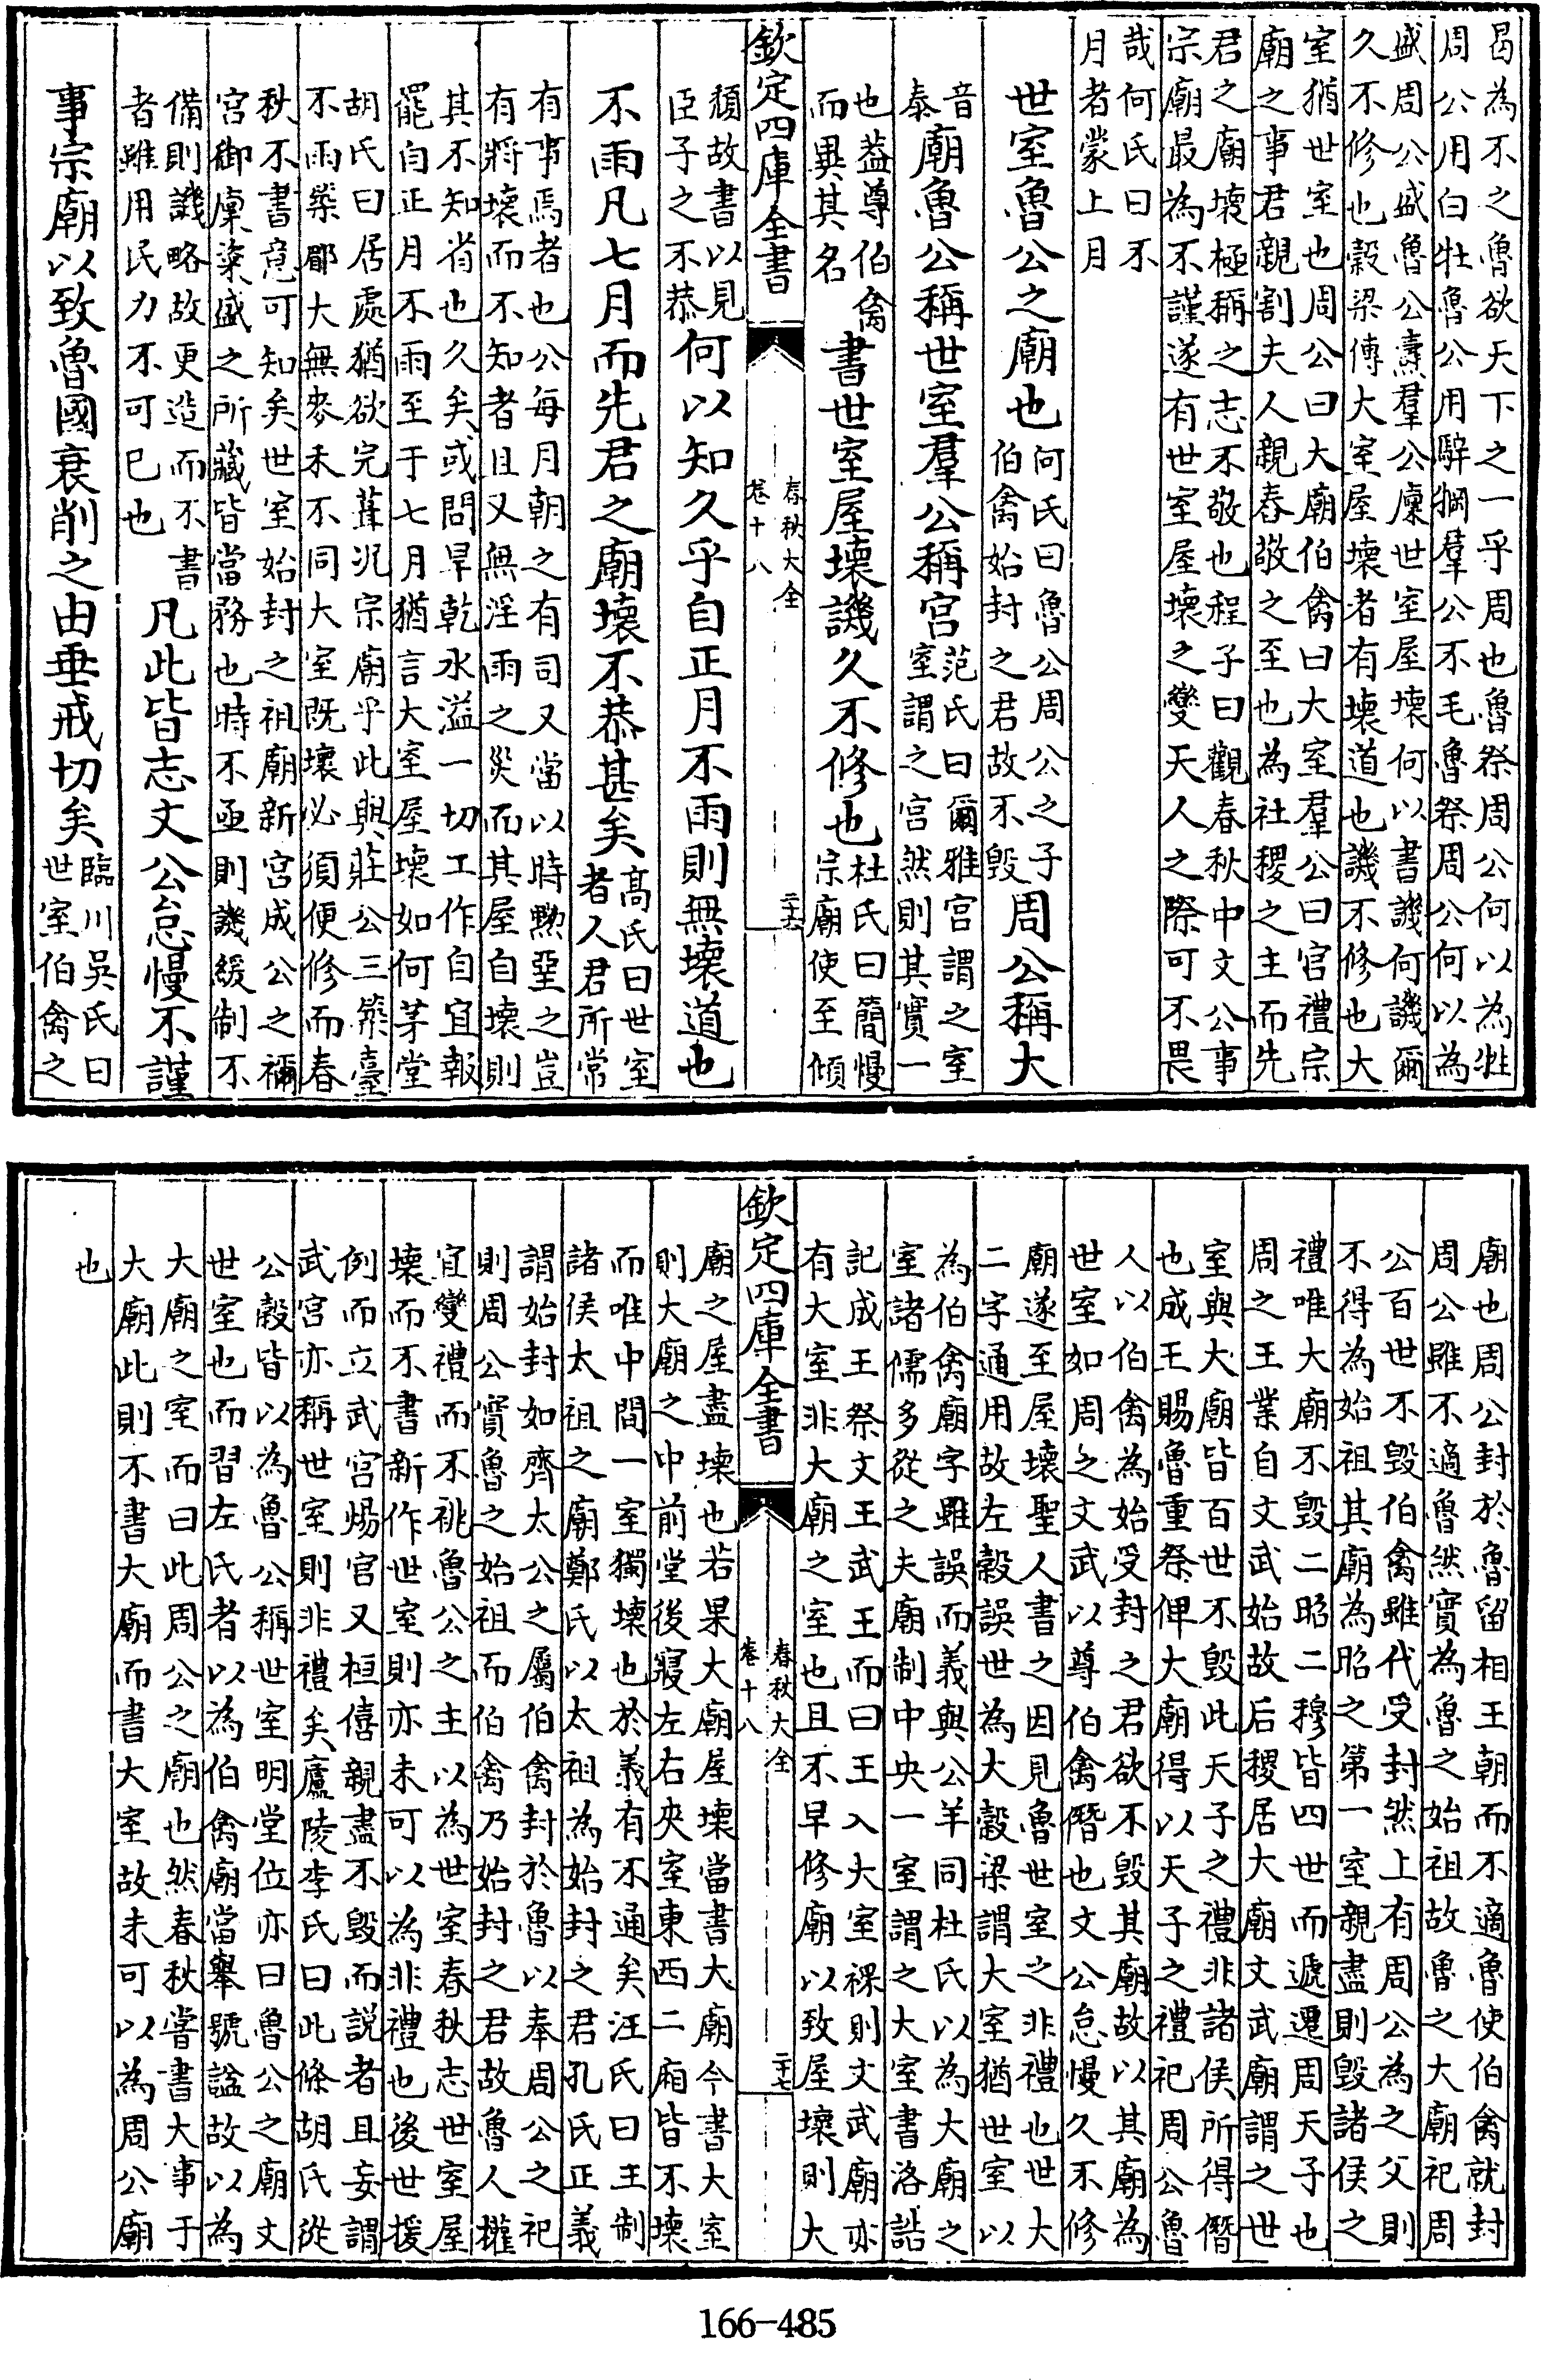 曷為不之魯欲天下之一乎周也魯祭周公何以為牲
周公用白牡魯公用騂犅羣公不毛魯祭周公何以為
盛周公盛魯公燾羣公廩世室屋壞何以書譏何譏爾
久不修也穀梁傳大室屋壞者有壞道也譏不修也大
室猶世室也周公曰大廟伯禽曰大室羣公曰宫禮宗
廟之事君親割夫人親舂敬之至也為社稷之主而先
君之廟壞極稱之志不敬也程子曰觀春秋中文公事
宗廟最為不謹遂有世室屋壞之變天人之際可不畏
哉何氏曰不
月者蒙上月
世室魯公之廟也
何氏曰魯公周公之子
伯禽始封之君故不毁
周公稱大
音
泰
廟魯公稱世室羣公稱宫
范氏曰爾雅宫謂之室
室謂之宫然則其實一
也葢尊伯禽
而異其名
書世室屋壞譏久不修也
杜氏曰簡慢
宗廟使至傾
欽定四庫全書
春秋大全
卷十八
二十六
頽故書以見
臣子之不恭
何以知久乎自正月不雨則無壞道也
不雨凡七月而先君之廟壞不恭甚矣
高氏曰世室
者人君所常
有事焉者也公每月朝之有司又當以時黝堊之豈
有將壞而不知者且又無淫雨之災而其屋自壞則
其不知省也久矣或問旱乾水溢一切工作自宜報
罷自正月不雨至于七月猶言大室屋壞如何茅堂
胡氏曰居處猶欲完葺况宗廟乎此與莊公三築臺
不雨築郿大無麥禾不同大室既壞必須便修而春
秋不書意可知矣世室始封之祖廟新宫成公之禰
宫御廩粢盛之所藏皆當務也時不亟則譏緩制不
備則譏略故更造而不書
者雖用民力不可已也
凡此皆志文公怠慢不謹
事宗廟以致魯國衰削之由垂戒切矣
臨川吳氏曰
世室伯禽之
廟也周公封於魯留相王朝而不適魯使伯禽就封
周公雖不適魯然實為魯之始祖故魯之大廟祀周
公百世不毁伯禽雖代受封然上有周公為之父則
不得為始祖其廟為昭之第一室親盡則毁諸侯之
禮唯大廟不毁二昭二穆皆四世而遞遷周天子也
周之王業自文武始故后稷居大廟文武廟謂之世
室與大廟皆百世不毁此天子之禮非諸侯所得僭
也成王賜魯重祭俾大廟得以天子之禮祀周公魯
人以伯禽為始受封之君欲不毁其廟故以其廟為
世室如周之文武以尊伯禽僭也文公怠慢久不修
廟遂至屋壞聖人書之因見魯世室之非禮也世大
二字通用故左穀誤世為大穀梁謂大室猶世室以
為伯禽廟字雖誤而義與公羊同杜氏以為大廟之
室諸儒多從之夫廟制中央一室謂之大室書洛誥
記成王祭文王武王而曰王入大室祼則文武廟亦
有大室非大廟之室也且不早修廟以致屋壞則大
欽定四庫全書
春秋大全
卷十八
二十七
廟之屋盡壞也若果大廟屋壞當書大廟今書大室
則大廟之中前堂後寢左右夾室東西二廂皆不壞
而唯中間一室獨壞也於義有不通矣汪氏曰王制
諸侯太祖之廟鄭氏以太祖為始封之君孔氏正義
謂始封如齊太公之屬伯禽封於魯以奉周公之祀
則周公實魯之始祖而伯禽乃始封之君故魯人權
宜變禮而不祧魯公之主以為世室春秋志世室屋
壞而不書新作世室則亦未可以為非禮也後世援
例而立武宫煬宫又桓僖親盡不毁而説者且妄謂
武宫亦稱世室則非禮矣廬陵李氏曰此條胡氏從
公榖皆以為魯公稱世室明堂位亦曰魯公之廟文
世室也而習左氏者以為伯禽廟當舉號諡故以為
大廟之室而曰此周公之廟也然春秋嘗書大事于
大廟此則不書大廟而書大室故未可以為周公廟
也
166-485